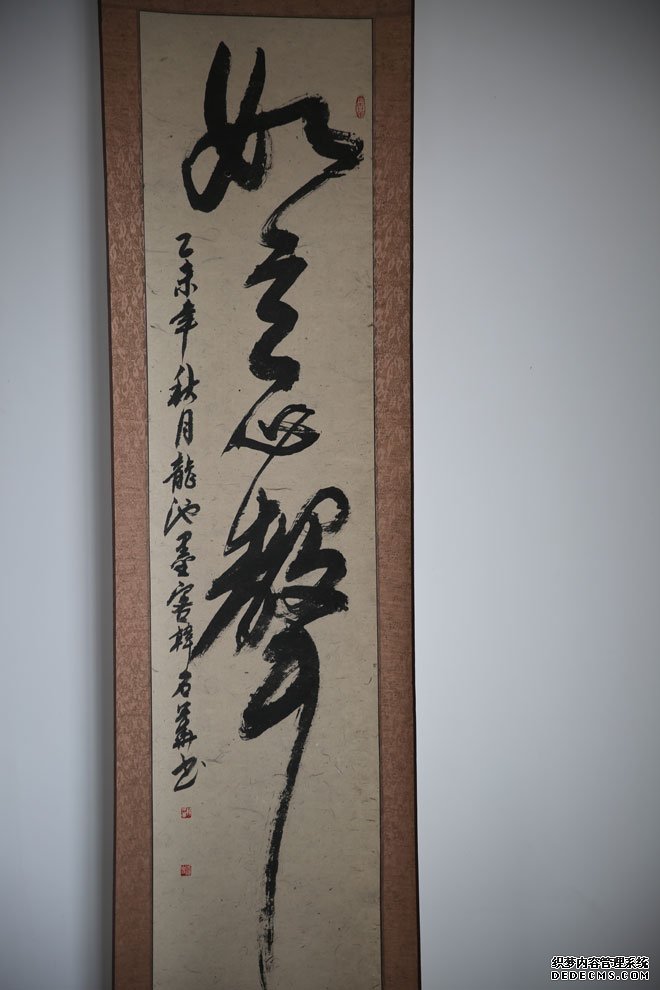 如意聲
乙未年秋月龍池墨客石華书
织梦内容管理系统
DEDECMS.COM